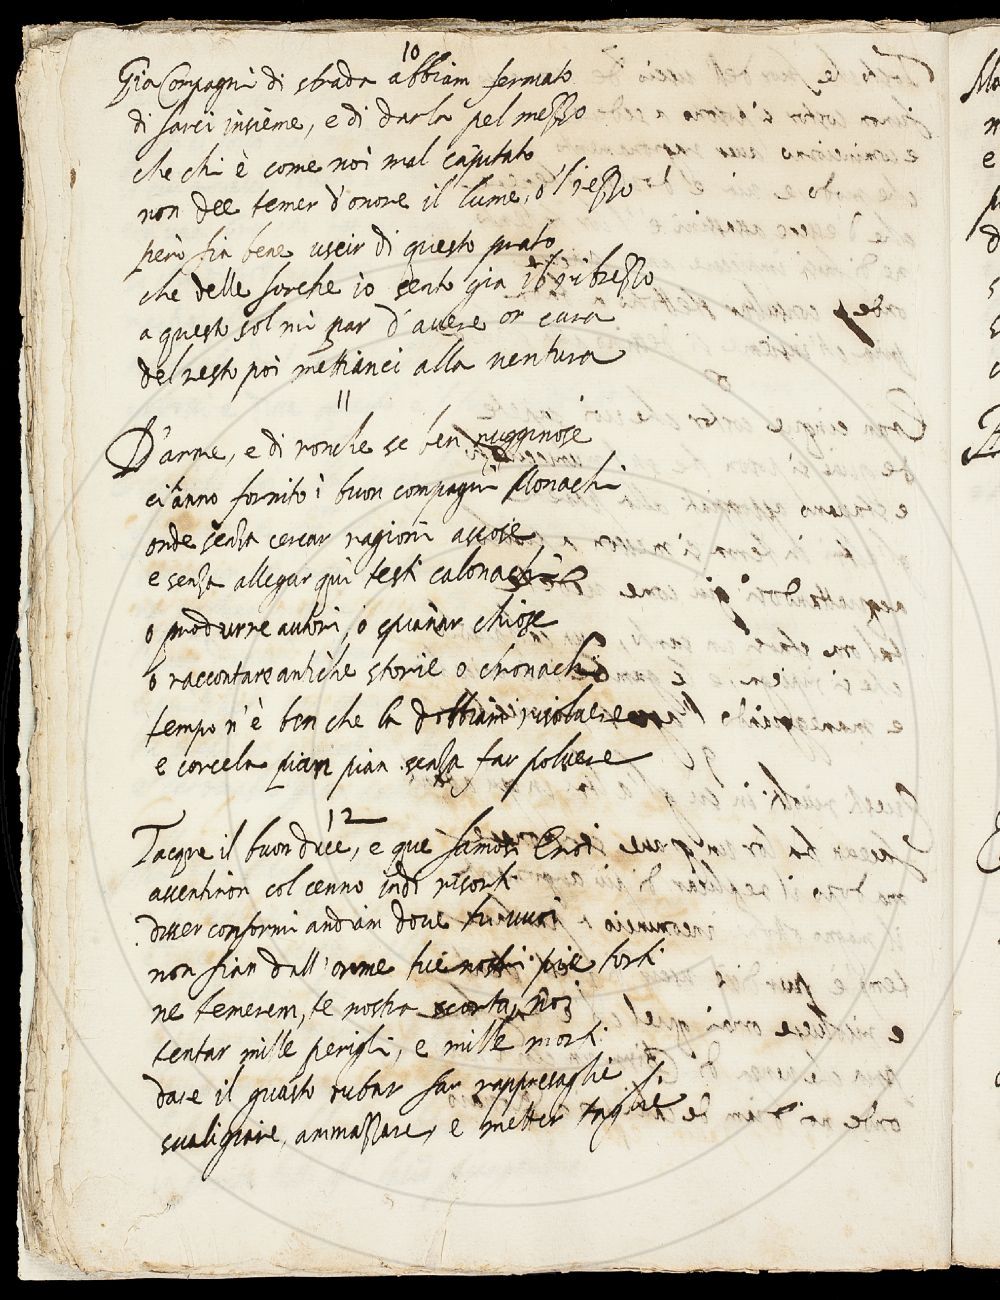 10
Gia Compagni di strada abbiam fermato
di farci insieme, e di darla pel mezzo
che chi è come noi mal capitato
non dee temer d'onore il lume, o 'l rezzo
però fia bene uscir di questo prato
che delle forche io sento gia il ribrezzo
a questo sol mi par d'avere or cura
del resto poi mettianci alla ventura
11
D'arme, e di ronche se ben rugginose
ci anno fornito i buon compagni Monachi
onde senza cercar ragioni ascose
e senza allegar qui testi calonachi
o produrre autori, o spianar chiose
o raccontare antiche storie o chronachi
tempo n'è ben che la dobbiam risolvere
e corcela pian pian senza far polvere
12
Tacque il buon duce, e que famosi Eroi
assentiron col cenno indi risorti
disser conformi andiam dove tu vuoi
non fian dall'orme tue nostri piè torti
ne temerem, te nostra scorta, noi
tentar mille perigli, e mille morti
dare il guasto rubar far rappresaglie
svaligiare, ammazzare, e metter taglie